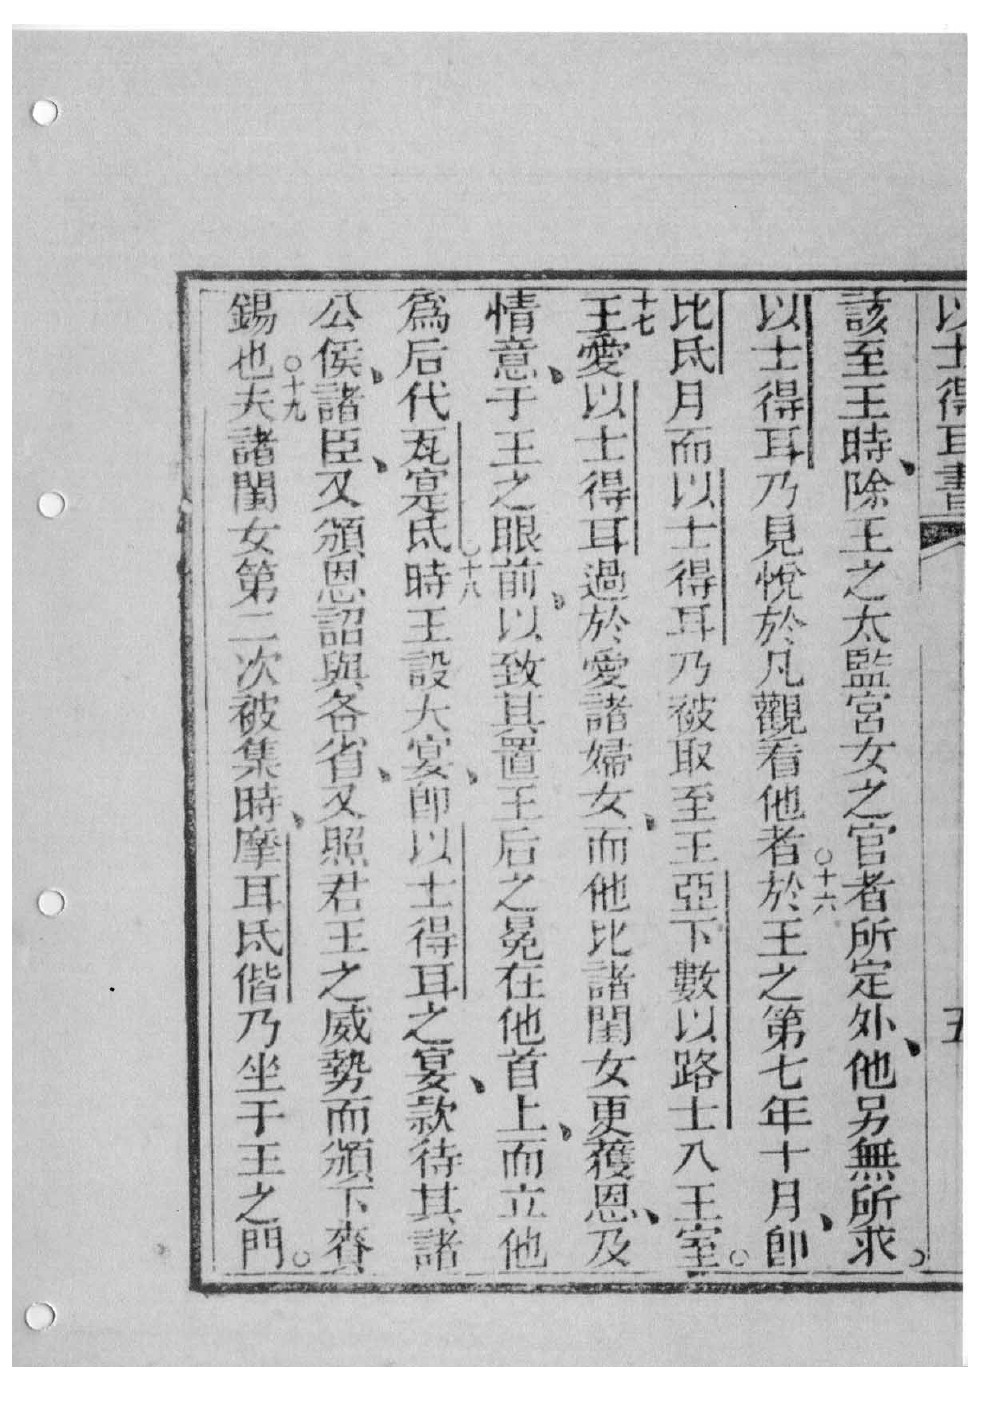 以士得耳書 五
該至王時、除王之太監宮女之官者所定外、他另無所求。
以士得耳乃見悅於凡觀看他者○十六於王之第七年十月、卽
比氏月而以士得耳乃被取至王亞下數以路士八王室。
十七王愛以士得耳過於愛諸婦女、而他比諸閨女更獲恩、及
情意、于王之眼前、以致其置王后之冕在他首上、而立他
爲后代瓦寔氏○十八時王設大宴、卽以士得耳之宴、款待其諸
公侯、諸臣、又頒恩詔與各省、又照君王之威勢而頒下賚
錫也○十九夫諸閨女第二次被集時、摩耳氏偕乃坐于王之門。